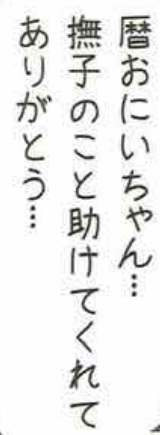 暦おにいちゃん…
撫子のこと助けてくれて
ありがとう…